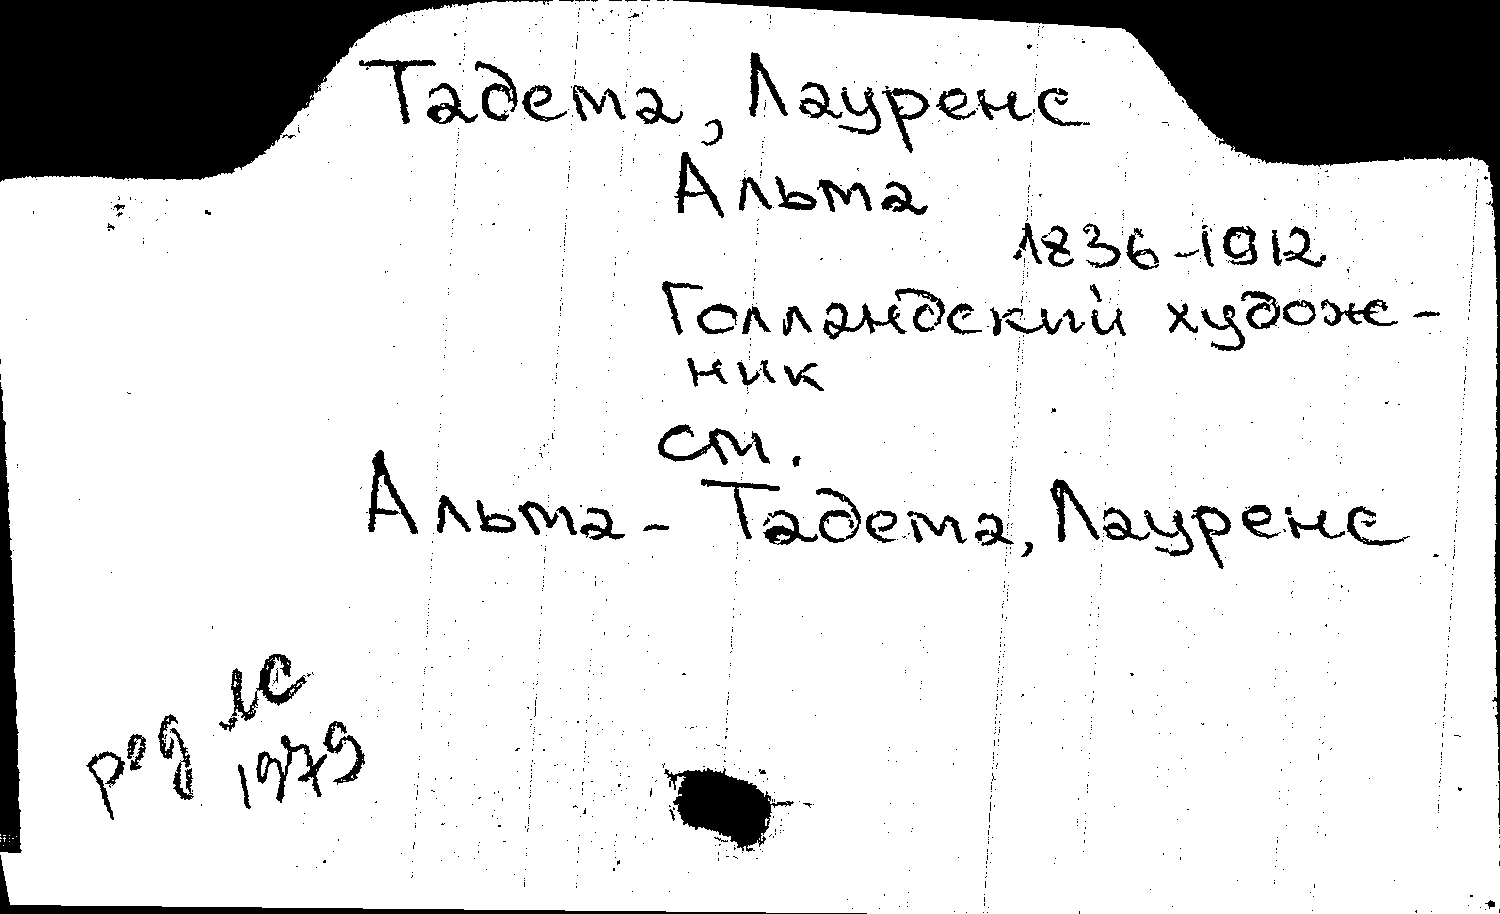 Тадема, Лауренс
Альма
1836-1912
Голландский худож-
ник
см.
Альма-Тадема, Лауренс
1979